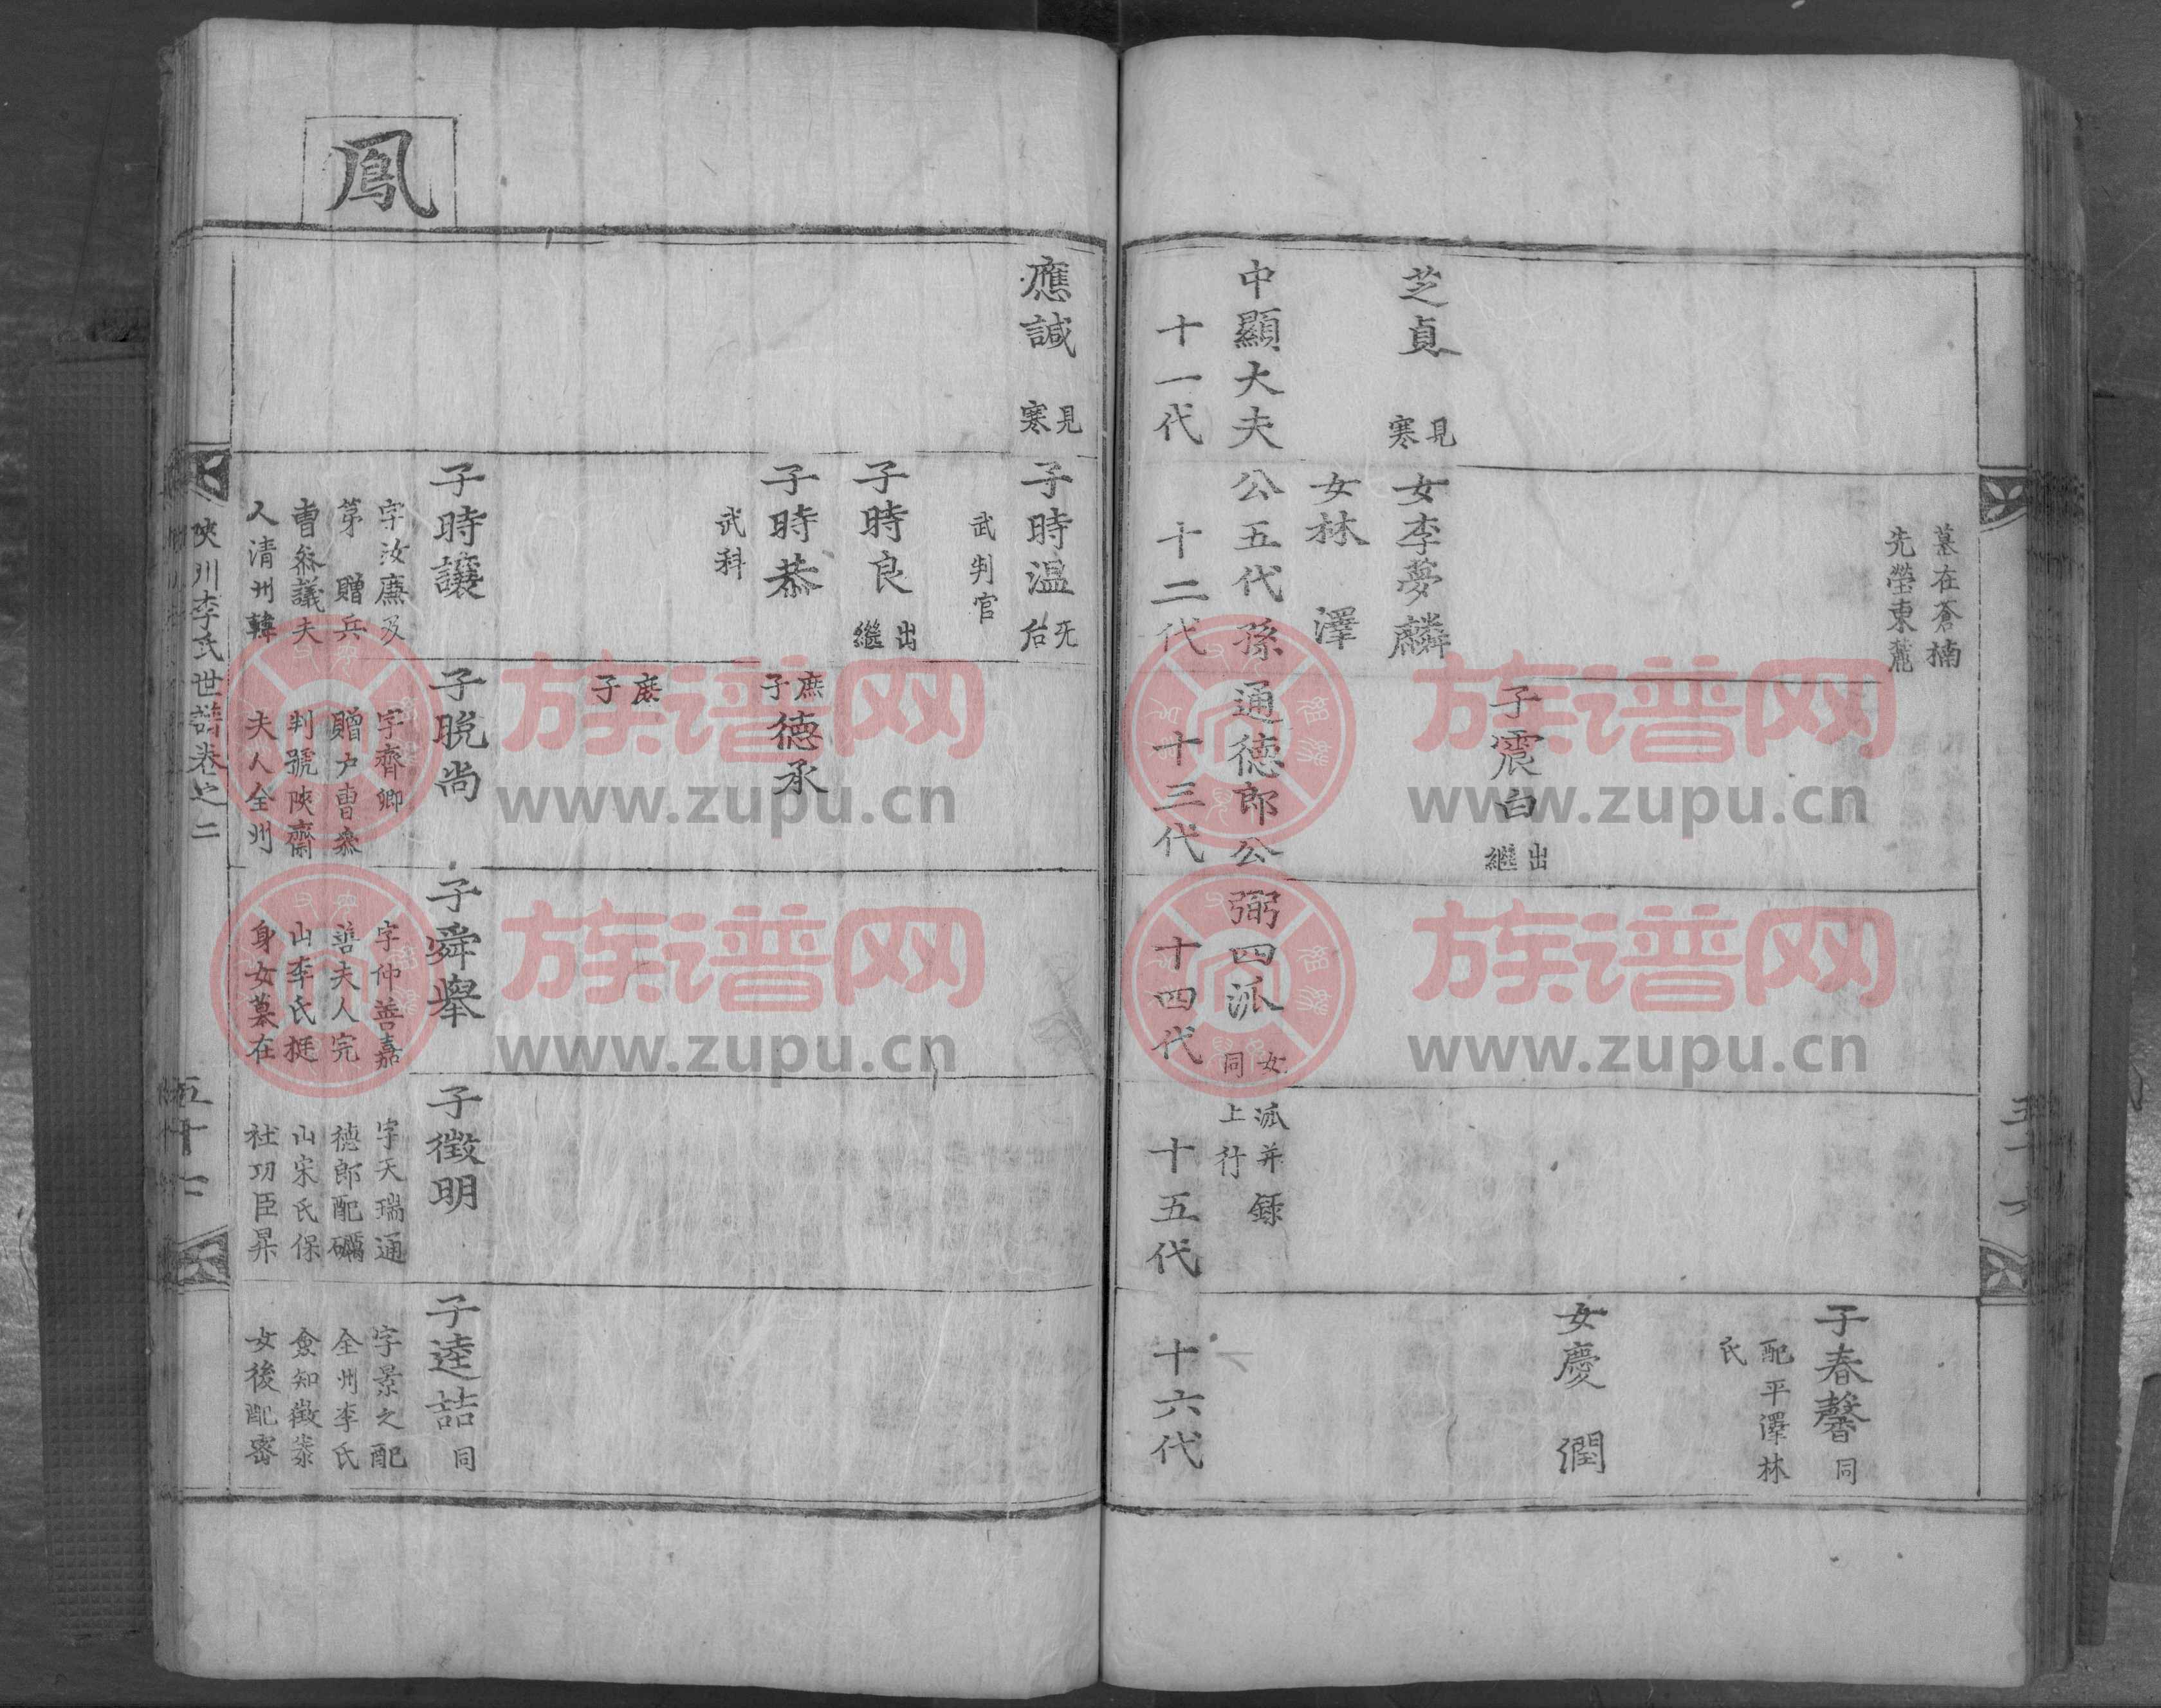 墓在蒼楠
先塋東麓
子春馨 同
配平澤林
氏
女慶 潤
子震白 出繼
芝貞 見寒
女李夢麟
女林 澤
中顯大夫公五代孫通德郎公弼四派 女派并錄
同上行
十一代 十二代 十三代 十四代 十五代 十六代
應諴 見寒
子時温 无后
武判官
子時良 出繼
子時恭
武科
庶子德承
庶子
子時讓
字汝廉及
第 贈兵
曹叅議夫
人清州韓
子晩尚
字齊卿
贈户曹叅
判號陜齋
夫人全州
子舜舉
字仲善嘉
善夫人完
山李氏挺
身女墓在
子徵明
字天瑞通
德郎配礪
山宋氏保
社功臣昇
子逵喆 同
字景之配
全州李氏
僉知徵泰
女後配密
鳳
陜川李氏世譜卷之二
族谱网
www.zupu.cn
族谱网
www.zupu.cn
族谱网
www.zupu.cn
族谱网
www.zupu.cn